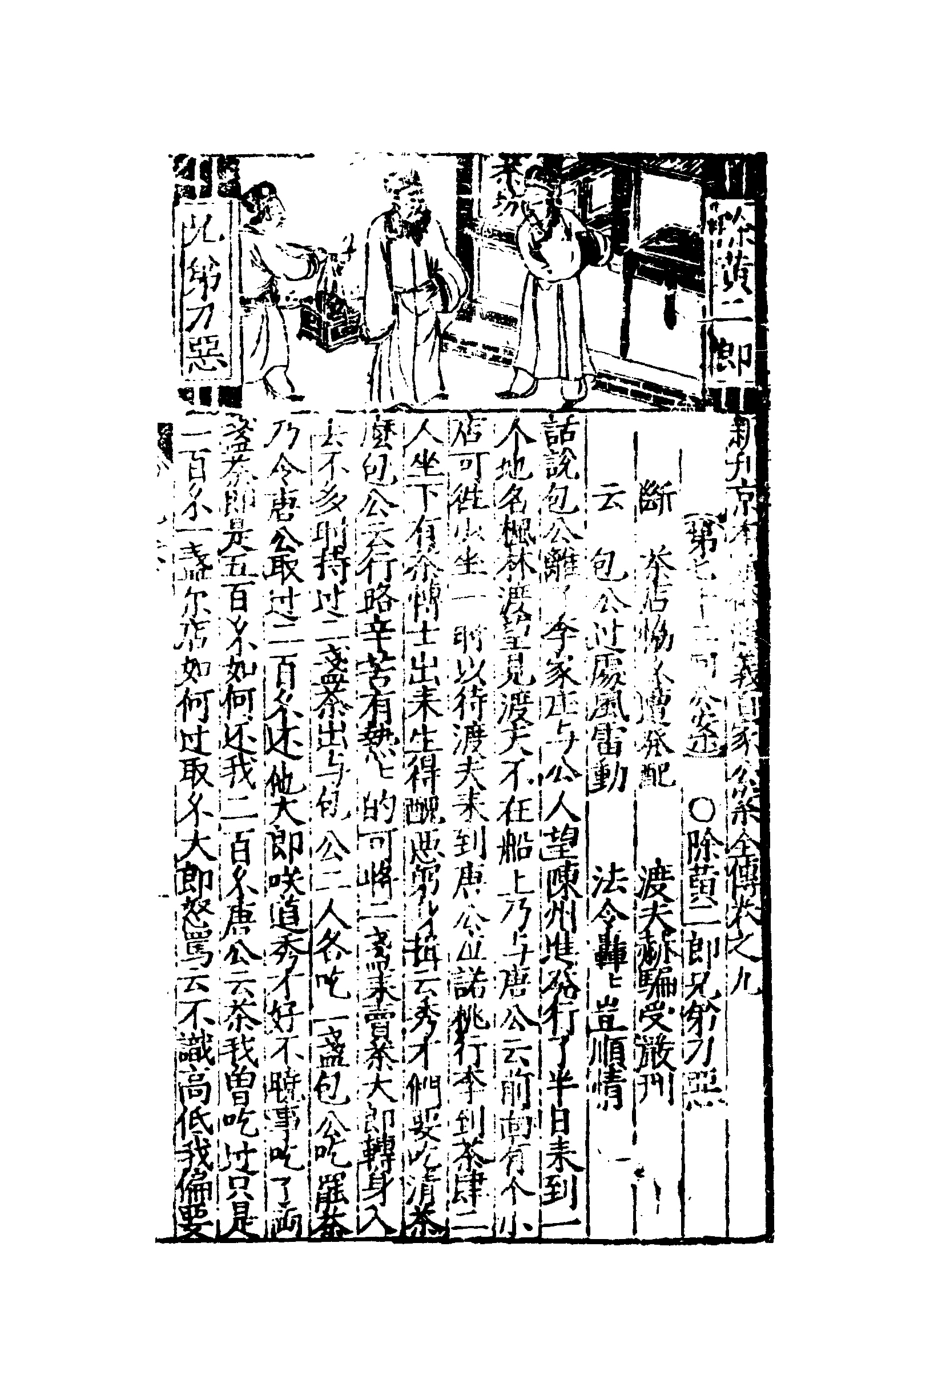 除黄二郎
兄弟刀惡
茶坊
新刋京本義百家公案全傳卷之九
第七十二回公案 〇除黄二郎兄弟刀惡
斷 茶店惱人遭発配 渡夫赫騙受嚴刑
云 包公过處風雷動 法令轟〻豈順情
話說包公離了李家庄与公人望陳州進發行了半日来到一
个地名楓林渡望見渡夫不在船上乃与唐公云前面有个小
店可徃少坐一时以待渡夫来到唐公应諾桃行李到茶肆二
人坐下有茶愽士出来生得醜惡躬身揖云秀才們要吃清茶
麽包公云行路辛苦有熱〻的可將二盞来賣茶大郎轉身入
去不多时持过二盞茶出与包公二人各吃一盞包公吃罷茶
乃令唐公取过二百尔还他大郎咲道秀才好不暁事吃了両
盞茶即是五百尔如何还我二百尔唐公云茶我曽吃过只是
一百尔一盞尔店如何过取尔大郎怒罵云不識高低我偏要